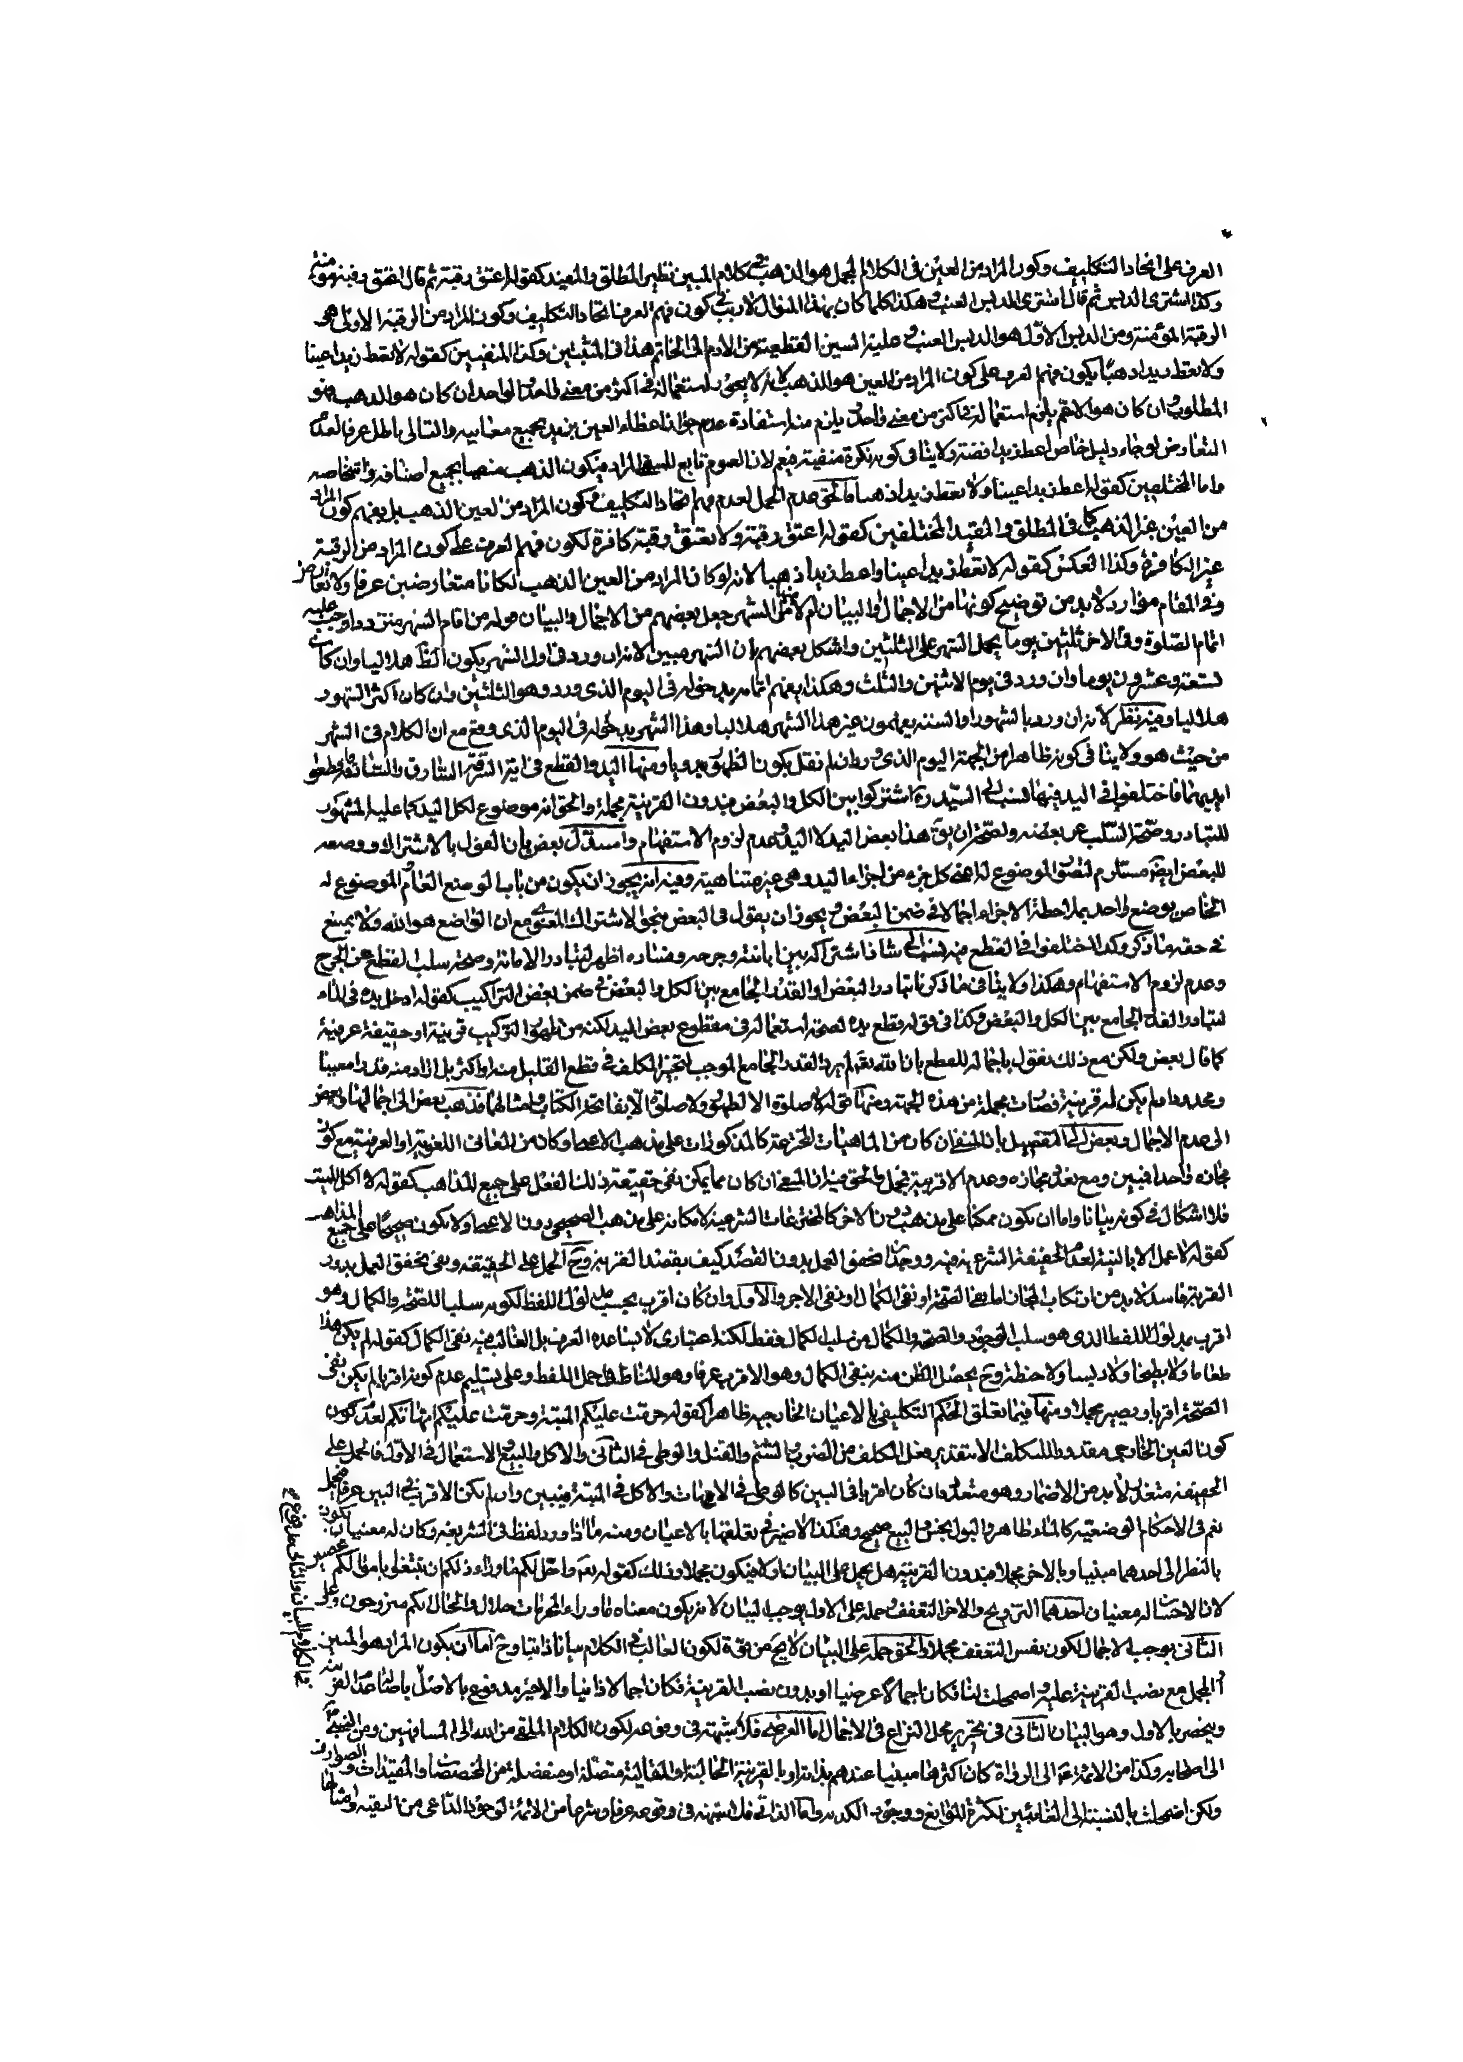 العرف على اتحاد التكليف وكون المراد من العين فى الكلام المجمل هو الذهب فى كلام المبين نظير المطلق والمقيد كقوله اعتق رقبة ثم قال اعتق رقبة مؤمنة
وكذا اشترى الدبس ثم قال اشترى الدبس العنب وهكذا كلما كان بهذا المنوال لا ريب فى كون فهم العرف اتحاد التكليف وكون المراد من الرقبة الاولى هى
الرقبة المؤمنة ومن الدبس الاول هو الدبس العنب وعليه السين القطعية من الادم الى الخاتم هذا فى المثبتين وكذا المنفيين كقوله لا تعط زيدا عينا
ولا تعط زيدا ذهبا يكون فهم العرف على كون المراد من العين هو الذهب لانه لا يجوز استعماله فى اكثر من معنى واحد والواحد ان كان هو الذهب فهو
المطلوب وان كان هو الاعم يلزم استعماله فى اكثر من معنى واحد ويلزم منه استفادة عدم جواز اعطاء العين بزيد بجميع معانيه والتالى باطل عرفا لعدم
التعارض لو جاء دليل خاص اعط زيدا فضة ولا ينافى كونه نكرة منفية فيعم لان العموم تابع للمعنى المراد فيكون الذهب منها بجميع اصنافه واشخاصه
واما المختلفين كقوله اعط زيدا عينا ولا تعط زيدا ذهبا فالحق عدم الحمل لعدم فهم اتحاد التكليف وكون المراد من العين الذهب بل يفهم كون المراد
من العين غير الذهب كما فى المطلق والمقيد المختلفين كقوله اعتق رقبة ولا تعتق رقبة كافرة لكون فهم العرف على كون المراد من الرقبة
غير الكافرة وكذا العكس كقوله لا تعط زيدا عينا واعط زيدا ذهبا لانه لو كان المراد من العين الذهب لكانا متعارضين عرفا ولا تعارض
وفى المقام موارد لا بد من توضيح كونها من الاجمال والبيان ام لا منها الشهر جعل بعضهم من الاجمال والبيان قوله من اقام الشهر مترددا وجب عليه
اتمام الصلوة وفى الاخر ثلثين يوما يحمل الشهر على الثلثين واشكل بعضهم بان الشهر مبين لانه ان ورد فى اول الشهر يكون الظ هلاليا وان كان
تسعة وعشرون يوما وان ورد فى يوم الاثنين والثلث وهكذا يفهم اتمامه بدخوله فى اليوم الذى ورد وهو الثلثين وان كان اكثر الشهور
هلاليا وفيه نظر لانه ان ورد بالشهور او السنة يعلمون غير هذا الشهر هلاليا وهذا الشهر بدخوله فى اليوم الذى وقع مع ان الكلام فى الشهر
من حيث هو ولا ينافى كونه ظاهرا من الجهة اليوم الذى ورد ان لم نقل بكون الظهور بدويا ومنها اليد والقطع فى اية السرقة السارق والسارقة فاقطعوا
ايديهما فاختلفوا فى اليد فيها فنسب الى السيد ره اشتراكها بين الكل والبعض فبدون القرينة مجملة والحق انه موضوع لكل اليد كما عليه المشهور
للتبادر وصحة السلب عن بعضه ولصحة ان يق هذا بعض اليد لا اليد وعدم لزوم الاستفهام واستدل بعض بان القول بالاشتراك ووضعه
للبعض ايض مستلزم لتصور الموضوع له اعنى كل جزء من اجزاء اليد وهى غير متناهية وفيه انه يجوز ان يكون من باب الوضع العام والموضوع له
الخاص بوضع واحد بملاحظة الاجزاء اجمالا فى ضمن البعض ويجوز ان يقول فى البعض بنحو الاشتراك المعنوى مع ان الواضع هو الله فلا يمنع
فى حقه ما ذكر وكذا اختلفوا فى القطع فنسب الى شاذ اشتراكه بين ابانته وجرحه وفساده اظهر لتبادر الابانة وصحة سلب القطع عن الجرح
وعدم لزوم الاستفهام وهكذا ولا ينافى ما ذكرنا تبادر البعض او القدر الجامع بين الكل والبعض فى ضمن بعض التراكيب كقوله ادخل يده فى الماء
لتبادر القدر الجامع بين الكل والبعض وكذا فى قوله قطع يده لصحة استعماله فى مقطوع بعض اليد لكنه من ظهور التركيب قرينة او حقيقة عرفية
كما قال بعض ولكن مع ذلك نقول باجماله للقطع بان الله تع لم يرد القدر الجامع الموجب لتخيير المكلف فى قطع القليل منه او اكثر بل اراد منه قدرا معينا
ومحدودا ولم يكن له قرينة فصارت مجملة من هذه الجهة ومنها قوله لا صلوة الا بطهور ولا صلوة الا بفاتحة الكتاب وامثالها فذهب بعض الى اجمالها وبعض
الى عدم الاجمال وبعض الى التفصيل بان المنفى ان كان من الماهيات المخترعة كالمذكورات على مذهب الاعم او كان من المعانى اللغوية او العرفية مع كون
مجازه واحدا فمبين ومع تعدد مجازه وعدم الاقربية فمجمل والحق فيه ان المنفى ان كان مما يمكن نفى حقيقة ذلك الفعل على جميع المذاهب كقوله لا اكل الميت
فلا اشكال فى كونه بيانا واما ان يكون ممكنا على مذهب دون الاخر كالمخترعات الشرعية لامكانه على مذهب الصحيحى دون الاعم او لا يكون صحيحا على جميع المذاهب
كقوله لا عمل الا بالنية لعدم الحقيقة الشرعية فيه ووجدنا تحقق العمل بدون القصد كيف بقصد القربة وح الحمل على الحقيقة ونفى تحقق العمل بدون
القربة فاسد لا بد من ارتكاب المجاز اما بنفى الصحة او نفى الكمال او نفى الاجر والاول وان كان اقرب بحسب مدلول اللفظ لكونه سلبا للصحة والكمال وهو
اقرب بمدلول اللفظ الذى هو سلب الوجود والصحة والكمال من سلب الكمال فقط لكنه اعتبارى لا يساعده العرف بل الغالب فيه نفى الكمال كقوله لم يكن هذا
طعاما ولا بطيخا ولا دبسا ولا حنطة وح يحصل الظن منه بنفى الكمال وهو الاقرب عرفا وهو المناط فى حمل اللفظ وعلى تسليم عدم كونه اقربا لم يكن نفى
الصحة اقربا ويصير مجملا ومنها فيما تعلق الحكم التكليفى بالاعيان الخارجية ظاهرا كقوله حرمت عليكم الميتة وحرمت عليكم امهاتكم لعدم كون
كون العين الخارجى مقدورا للمكلف الا بتقدير فعل المكلف من الضرب والشتم والقتل والوطى فى الثانى والاكل والبيع والاستعمال فى الاول فالحمل على
الحقيقة متعذر لا بد من الاضمار وهو متعدد فان كان اقربا فى البين كالوطى فى الامهات والاكل فى الميتة فيبين وان لم يكن الاقرب فى البين عرفا فمجمل
نعم فى الاحكام الوضعية كالماء طاهر والبول نجس والبيع صحيح وهكذا لا ضير فى تعلقها بالاعيان ومنه ما اذا ورد لفظ فى الشريعة وكان له معنيان يكون
بالنظر الى احدهما مبنيا وبالاخر مجملا فبدون القرينة هل يحمل على البيان او لا فيكون مجملا وذلك كقوله تع واحل لكم ما وراء ذلكم ان تبتغوا باموالكم محصنين
لان الاحصان له معنيان احدهما التزويج والاخر التعفف وحمله على الاول يوجب البيان لانه يكون معناه ما وراء المحرمات حلال والحال انكم متزوجون وعلى
الثانى يوجب الاجمال لكون نفس التعفف مجملا والحق حمله على البيان لا يخ من قوة لكون الغالب فى الكلام بيانا ذاتيا وح اما ان يكون المراد هو المبين
او المجمل مع نصب القرينة عليه واضمحلت لنا فكان اجمالا عرضيا او بدون نصب القرينة فكان اجمالا ذاتيا والاخير مدفوع بالاصل باصالة عدم القرينة
وينحصر بالاول وهو البيان الثانى فى تحرير محل النزاع فى الاجمال اما العرضى فلا شبهة فى وقوعه لكون الكلام الملقى من الله الى المسافهين ومن النبى ص
الى اصحابه وكذا من الائمة ع الى الرواة كان اكثرها مبنيا عندهم بذاته او بالقرينة الحالية او المقالية متصلة او منفصلة من المخصصات والمقيدات والصوارف
ولكن اضمحلت بالنسبة الى الغائبين لكثرة الموانع ووجود الكذبة واما الذاتى فلا شبهة فى وقوعه عرفا وشرعا من الائمة لوجود الداعى من التقية وامثالها